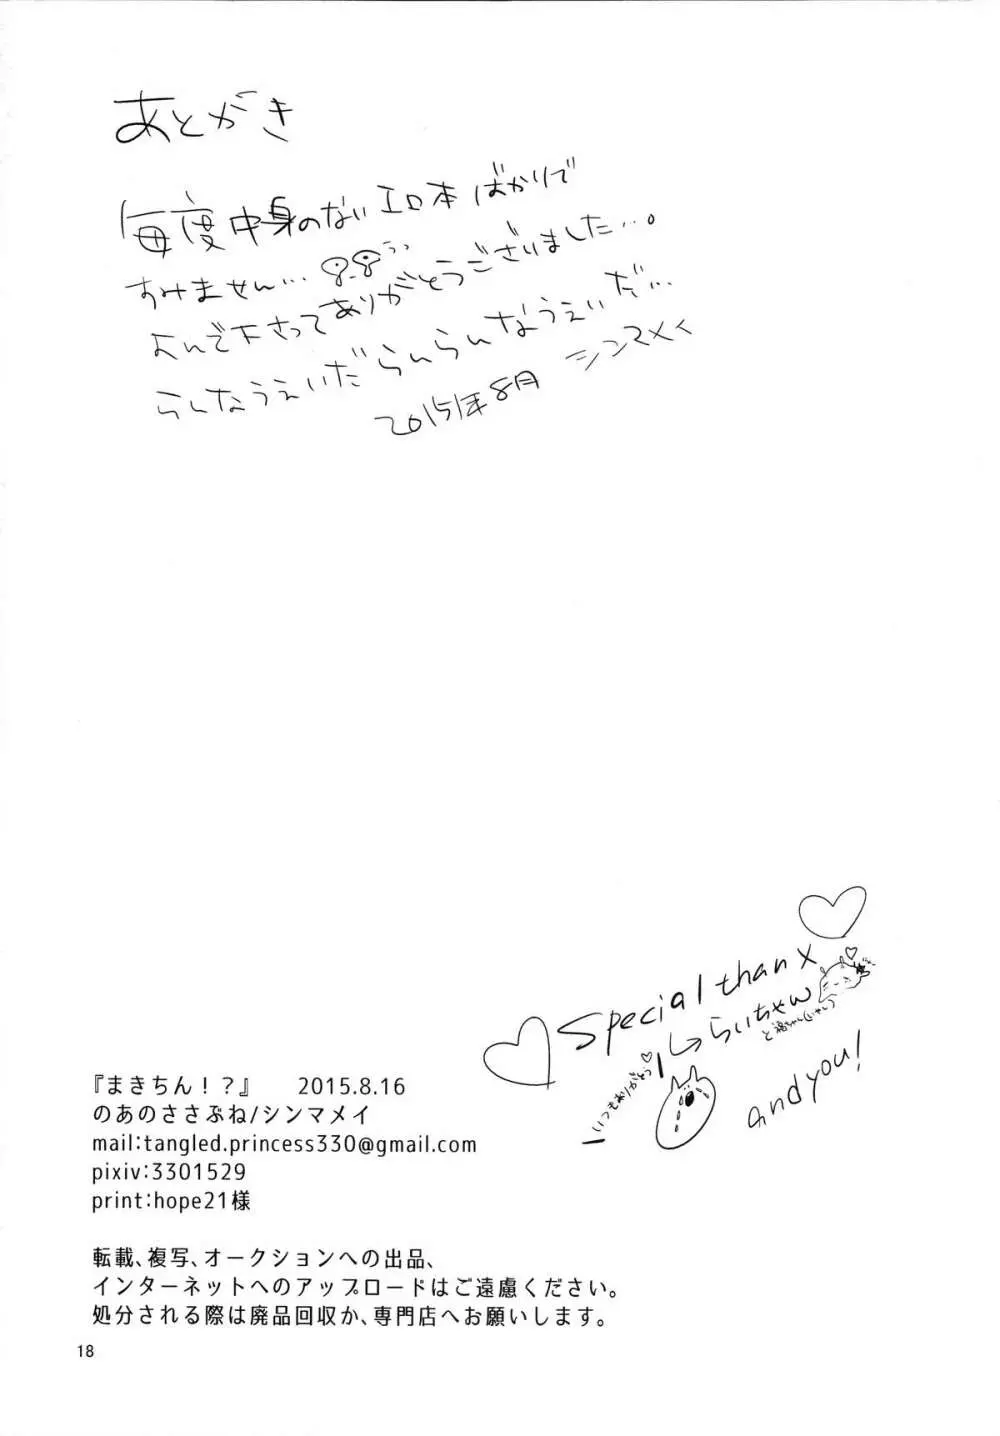 あとがき
毎度中身のないエロ本ばかりで
すみません…
よんで下さってありがとうございました…。
らんなうぇいだらんらんなうぇいだ…
2015年8月 シンマメイ
Special thanx
らいちゃん
いつもありがとう♡
and you!
『まきちん!?』 2015.8.16
のあのささぶね/シンマメイ
mail:tangled.princess330@gmail.com
pixiv:3301529
print:hope21様
転載、複写、オークションへの出品、
インターネットへのアップロードはご遠慮ください。
処分される際は廃品回収か、専門店へお願いします。
18